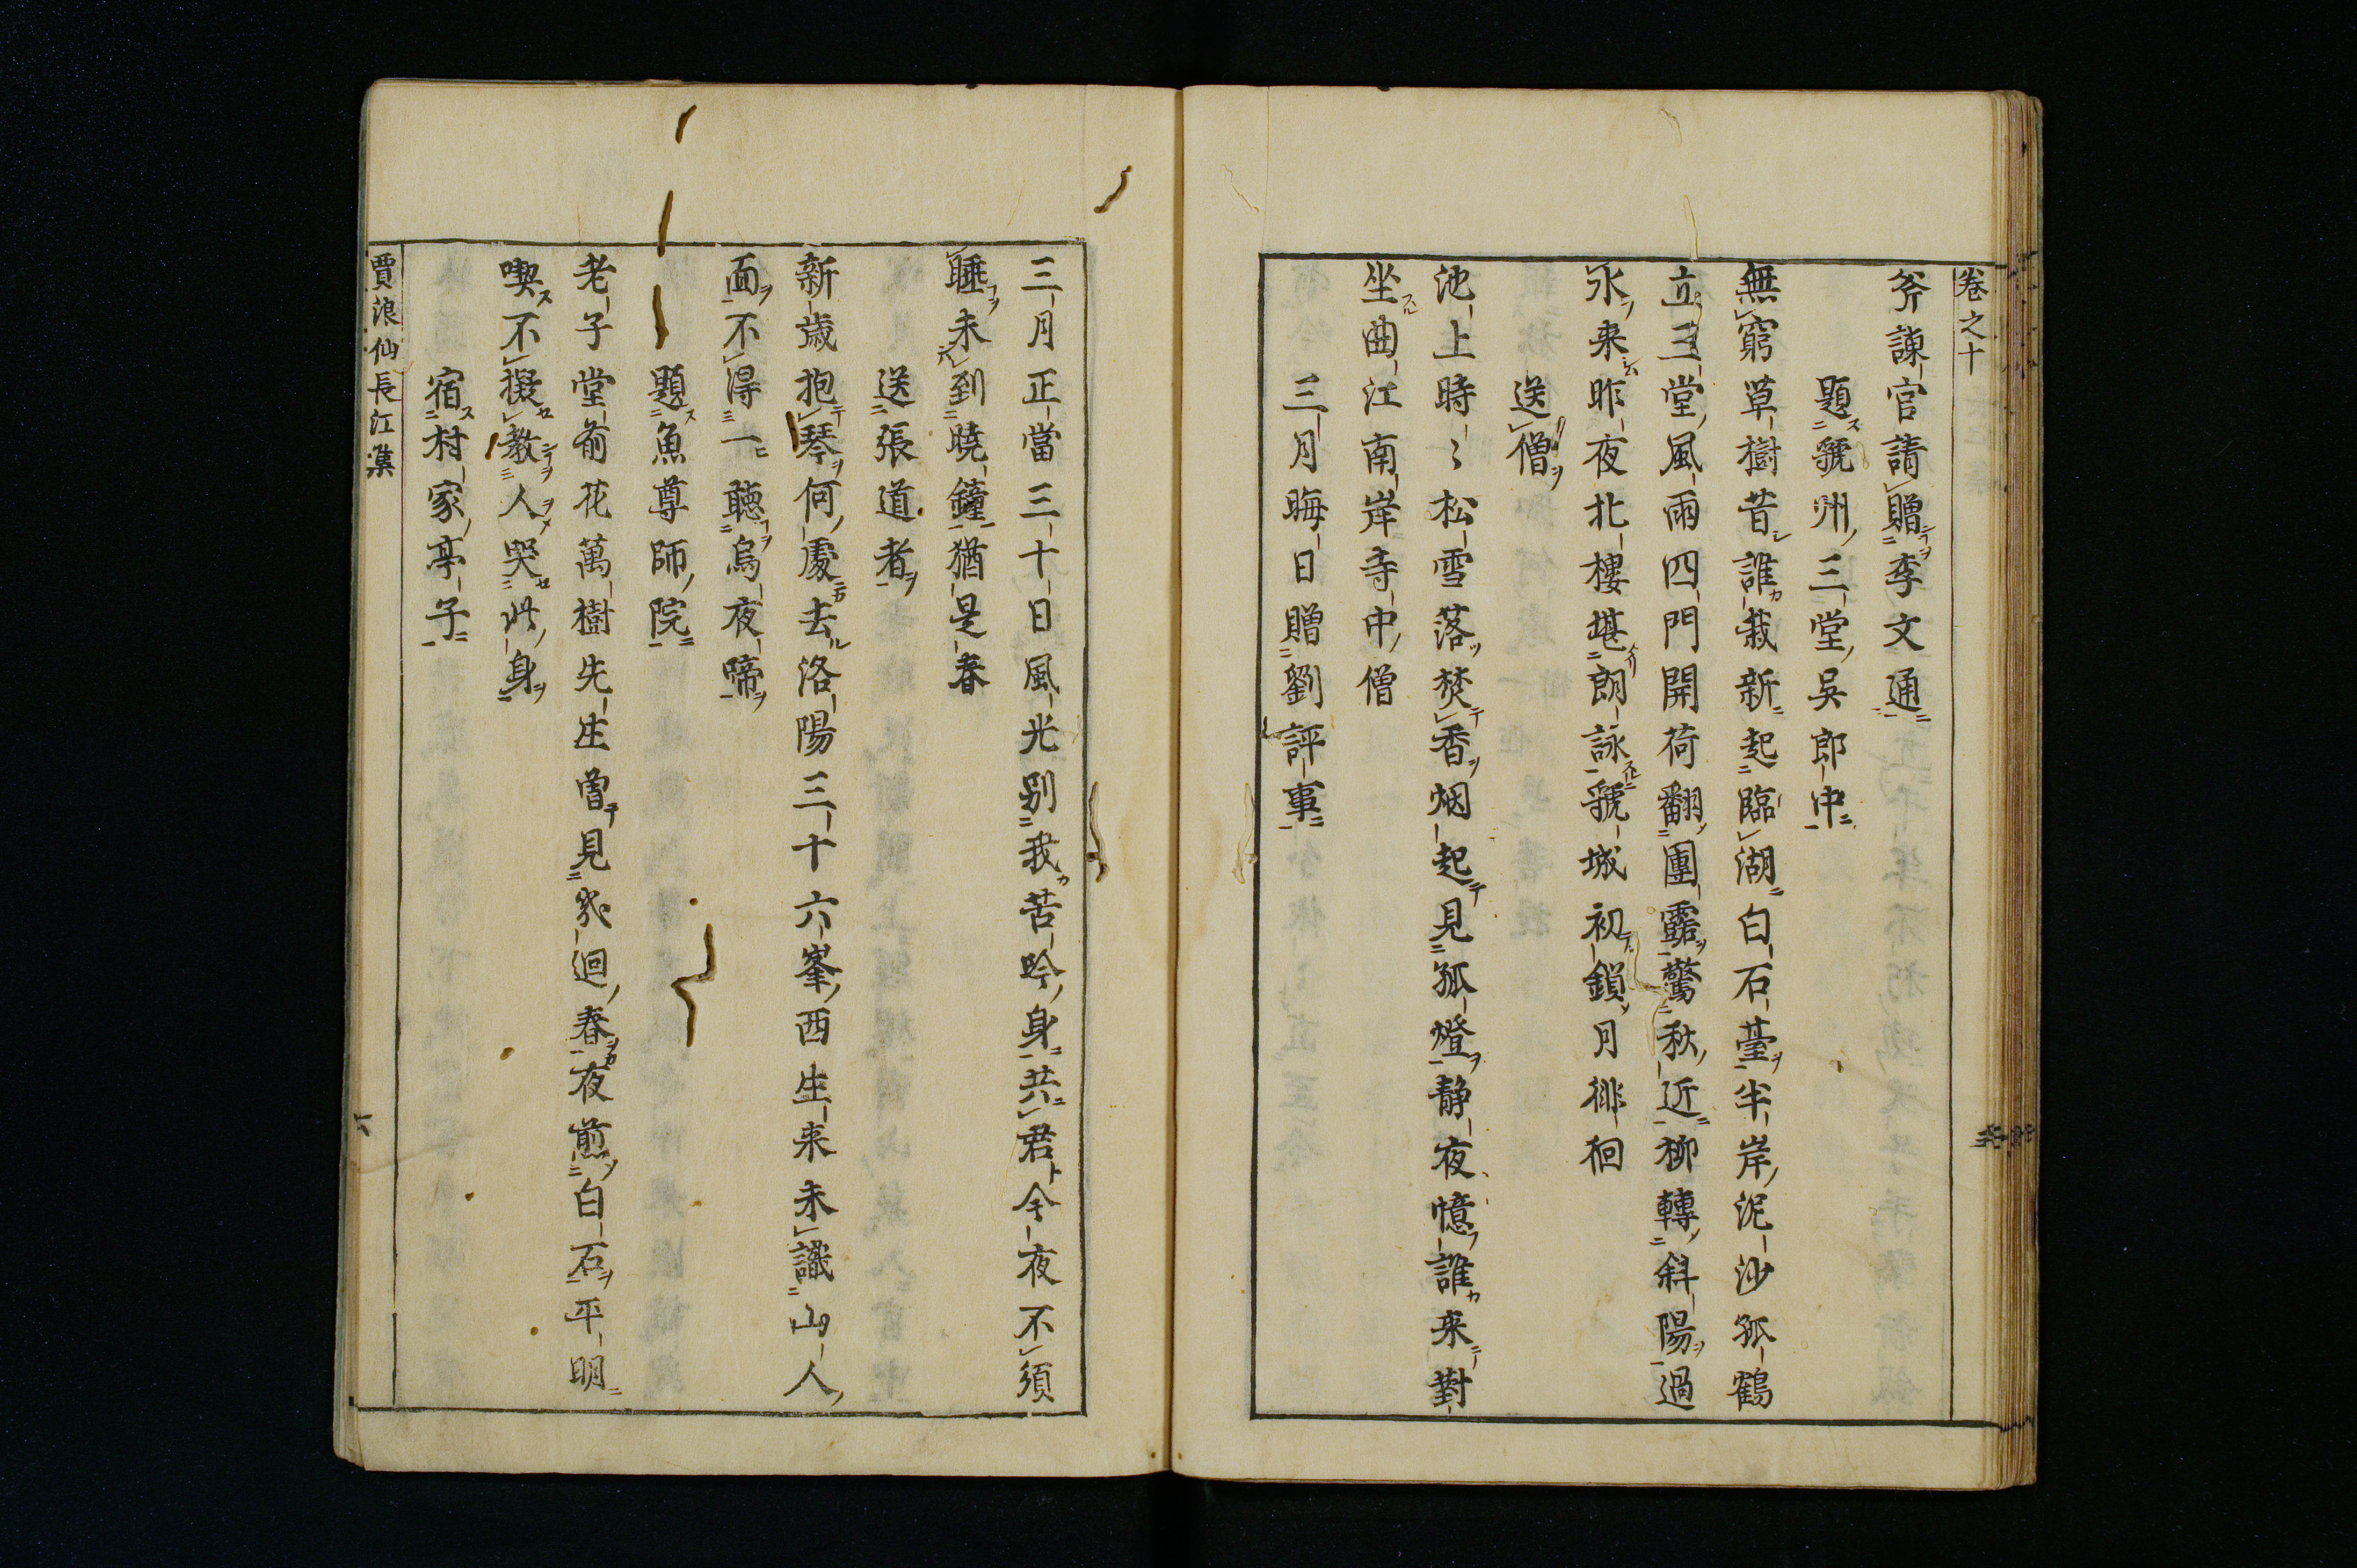 卷之十
斧諫官請贈李文通
題虢州三堂吳郎中
無窮草樹昔誰栽新起臨湖白石臺半岸泥沙孤鶴
立三堂風雨四門開荷翻團露驚秋近柳轉斜陽過
水来昨夜北樓堪朗詠虢城初鎖月徘徊
送僧
池上時〻松雪落焚香烟起見孤燈静夜憶誰来對
坐曲江南岸寺中僧
三月晦日贈劉評事
三月正當三十日風光別我苦吟身共君今夜不須
睡未到曉鐘猶是春
送張道者
新歲抱琴何處去洛陽三十六峯西生来未識山人
面不得一聽烏夜啼
題魚尊師院
老子堂前花萬樹先生曾見幾迴春夜煎白石平明
喫不擬教人哭此身
宿村家亭子
賈浪仙長江集